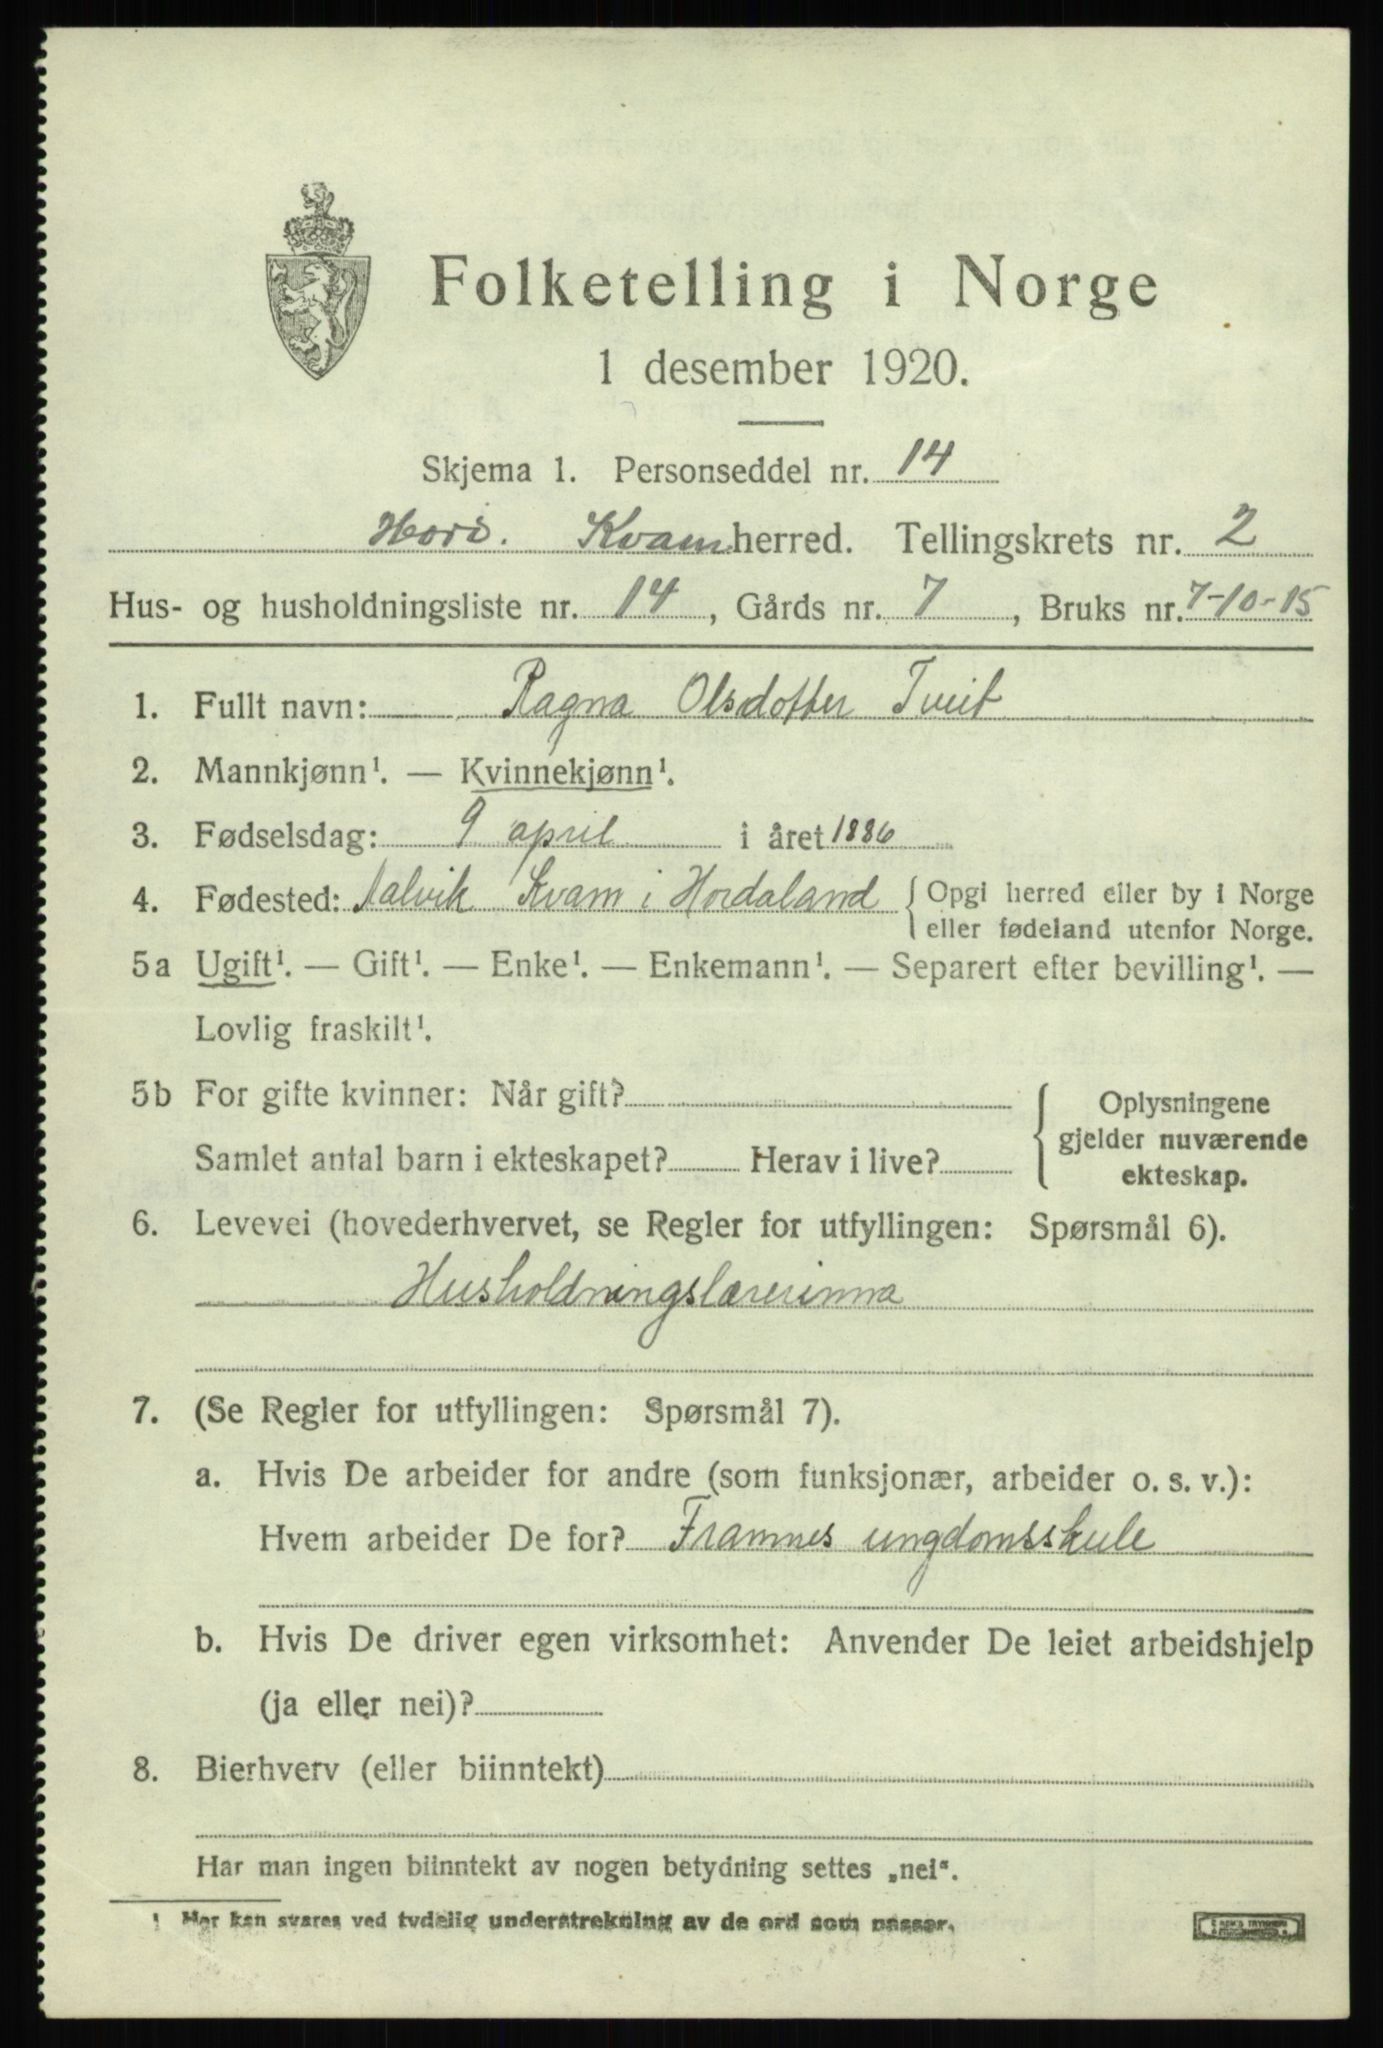 Folketelling i Norge
1 desember 1920.
Skjema 1. Personseddel nr. 14
Hord. Kvam herred. Tellingskrets nr. 2
Hus- og husholdningsliste nr. 14, Gårds nr. 7, Bruks nr. 7-10-15
1. Fullt navn: Ragna Olsdotter Tveit
2. Mannkjønn¹. — Kvinnekjønn¹.
3. Fødselsdag: 9 april i året 1886
4. Fødested: Aalvik Kvam i Hordaland { Opgi herred eller by i Norge
eller fødeland utenfor Norge.
5a Ugift¹. — Gift¹. — Enke¹. — Enkemann¹. — Separert efter bevilling¹. —
Lovlig fraskilt¹.
5b For gifte kvinner: Når gift?
Samlet antal barn i ekteskapet? Herav i live?
{ Oplysningene
gjelder nuværende
ekteskap.
6. Levevei (hovederhvervet, se Regler for utfyllingen: Spørsmål 6).
Husholdningslærerinna
7. (Se Regler for utfyllingen: Spørsmål 7).
a. Hvis De arbeider for andre (som funksjonær, arbeider o. s. v.):
Hvem arbeider De for? Framnes ungdomsskule
b. Hvis De driver egen virksomhet: Anvender De leiet arbeidshjelp
(ja eller nei)?
8. Bierhverv (eller biinntekt)
Har man ingen biinntekt av nogen betydning settes „nei".
¹ Her kan svares ved tydelig understrekning av de ord som passer.